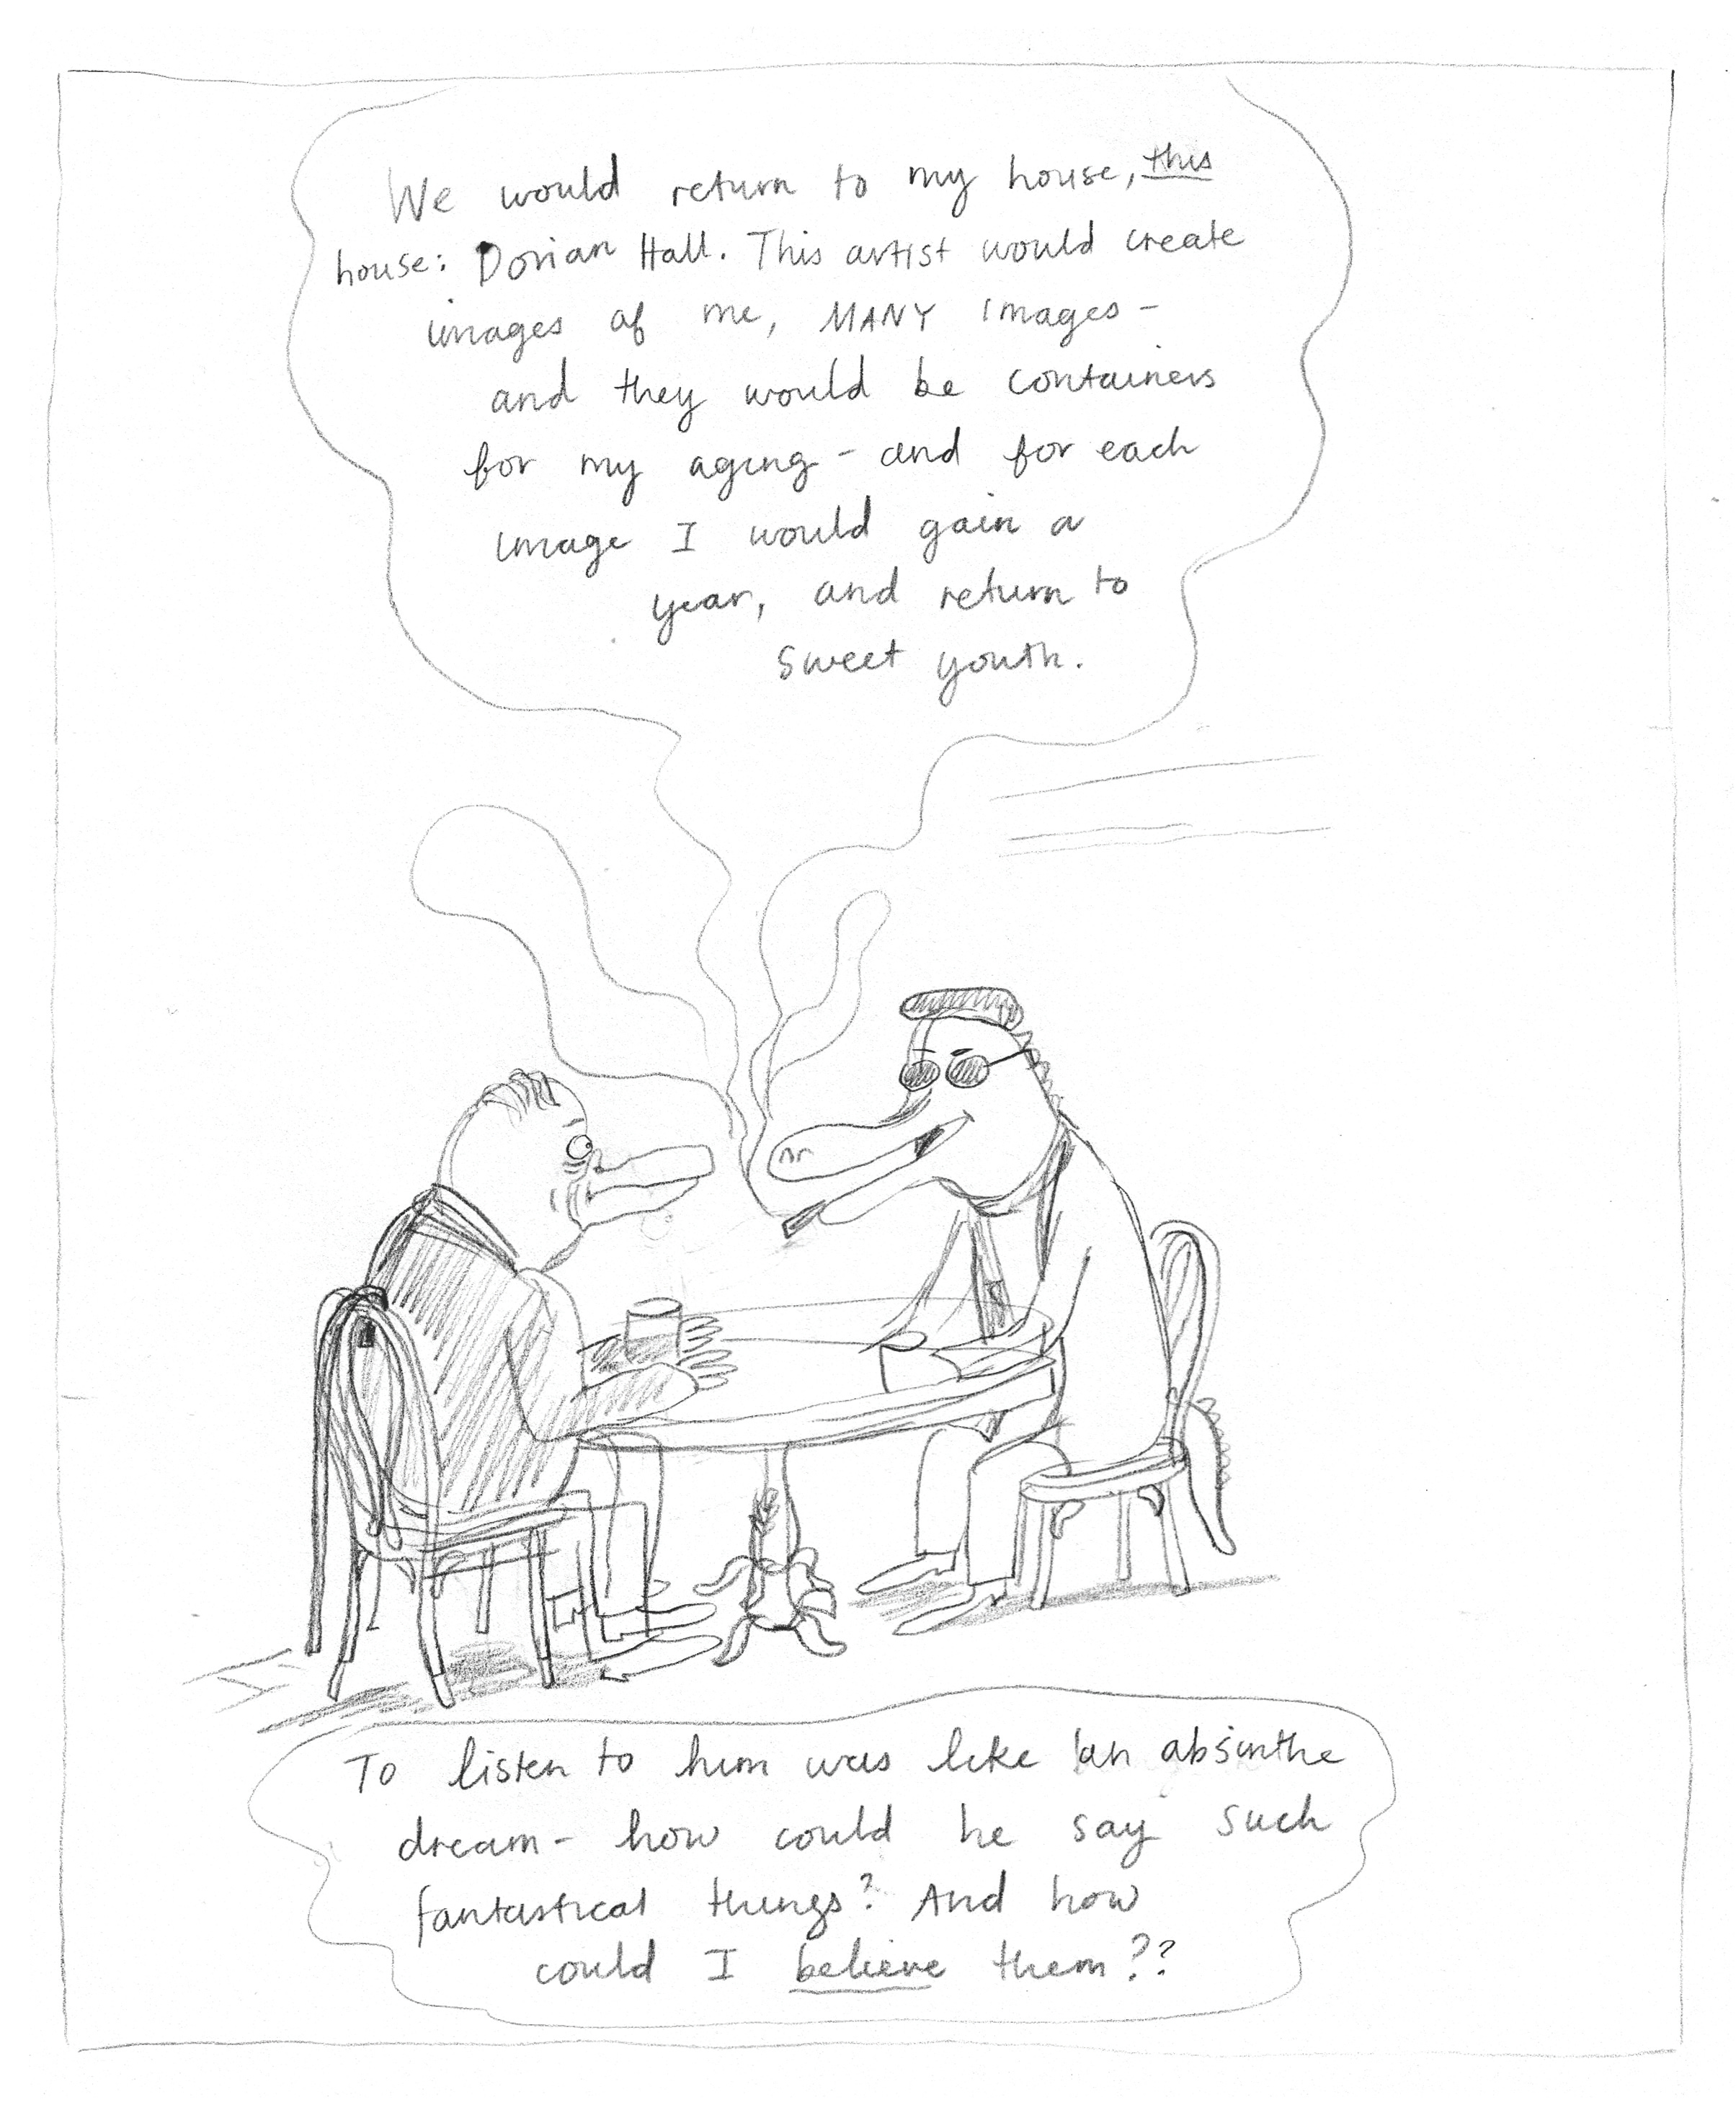 We would return to my house, this
house: Dorian Hall. This artist would create
images of me, MANY images -
and they would be containers
for my aging - and for each
image I would gain a
year, and return to
sweet youth.
To listen to him was like an absinthe
dream - how could he say such
fantastical things? And how
could I believe them??